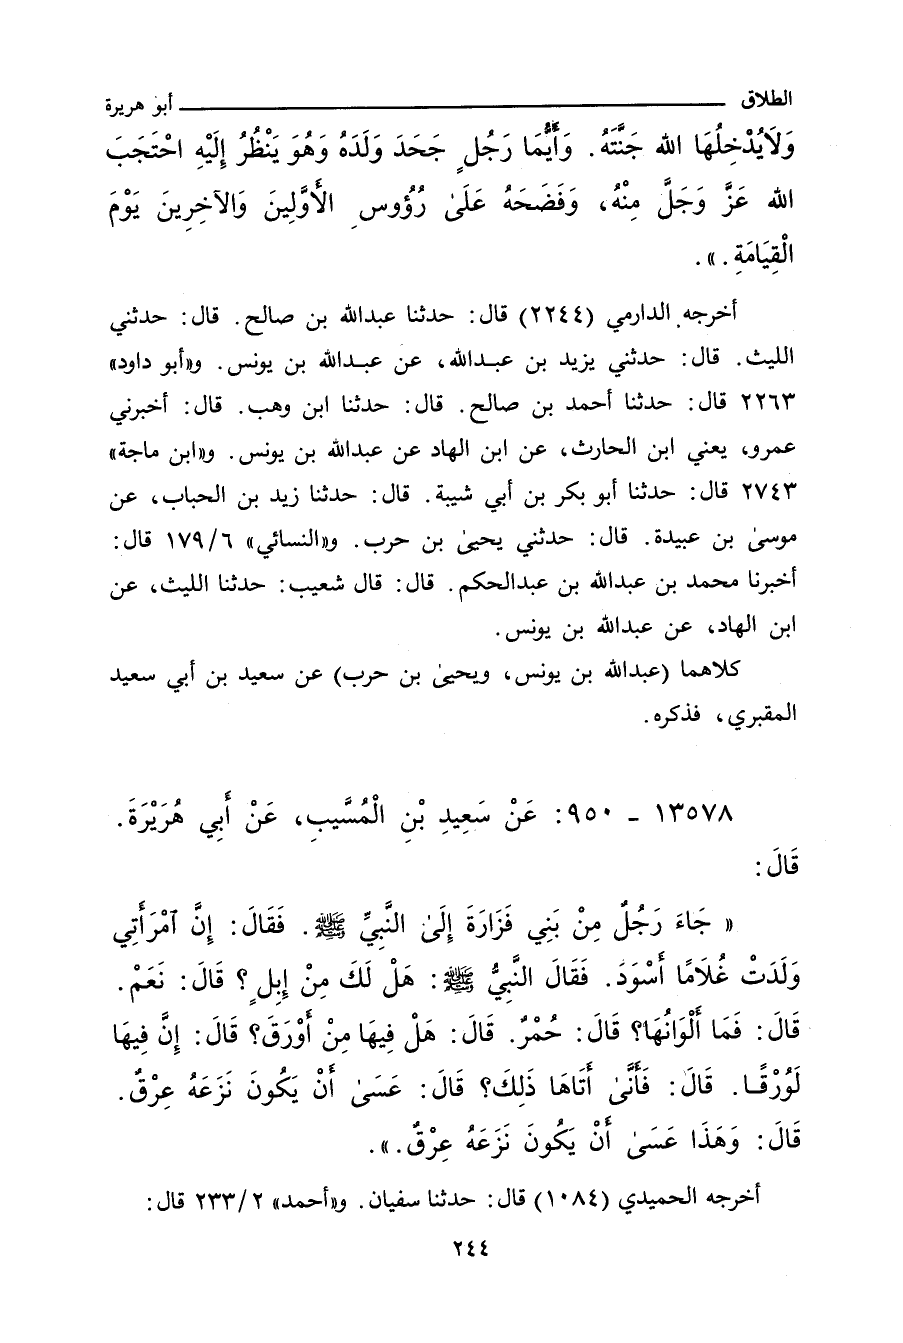 الطلاق ــــــــــ أبو هريرة
وَلَايُدْخِلُهَا الله جَنَّتَهُ. وَأَيُّمَا رَجُلٍ جَحَدَ وَلَدَهُ وَهُوَ يَنْظُرُ إِلَيْهِ احْتَجَبَ
الله عَزَّ وَجَلَّ مِنْهُ، وَفَضَحَهُ عَلَىٰ رُؤُوسِ الأَوَّلِينَ وَالآخِرِينَ يَوْمَ
الْقِيَامَةِ.».
أخرجه الدارمي (٢٢٤٤) قال: حدثنا عبدالله بن صالح. قال: حدثني
الليث. قال: حدثني يزيد بن عبدالله، عن عبدالله بن يونس. و«أبو داود»
٢٢٦٣ قال: حدثنا أحمد بن صالح. قال: حدثنا ابن وهب. قال: أخبرني
عمرو، يعني ابن الحارث، عن ابن الهاد عن عبدالله بن يونس. و«ابن ماجة»
٢٧٤٣ قال: حدثنا أبو بكر بن أبي شيبة. قال: حدثنا زيد بن الحباب، عن
موسىٰ بن عبيدة. قال: حدثني يحيىٰ بن حرب. و«النسائي» ١٧٩/٦ قال:
أخبرنا محمد بن عبدالله بن عبدالحكم. قال: قال شعيب: حدثنا الليث، عن
ابن الهاد، عن عبدالله بن يونس.
كلاهما (عبدالله بن يونس، ويحيىٰ بن حرب) عن سعيد بن أبي سعيد
المقبري، فذكره.
١٣٥٧٨ - ٩٥٠: عَنْ سَعِيدِ بْنِ الْمُسَّيبِ، عَنْ أَبِي هُرَيْرَةَ.
قَالَ:
« جَاءَ رَجُلٌ مِنْ بَنِي فَزَارَةَ إِلَىٰ النَّبِيِّ ﷺ. فَقَالَ: إِنَّ ٱمْرَأَتِي
وَلَدَتْ غُلَامًا أَسْوَدَ. فَقَالَ النَّبِيُّ ﷺ: هَلْ لَكَ مِنْ إِبِلٍ؟ قَالَ: نَعَمْ.
قَالَ: فَمَا أَلْوَانُهَا؟ قَالَ: حُمْرٌ. قَالَ: هَلْ فِيهَا مِنْ أَوْرَقَ؟ قَالَ: إِنَّ فِيهَا
لَوُرْقًا. قَالَ: فَأَنَّىٰ أَتَاهَا ذَلِكَ؟ قَالَ: عَسَىٰ أَنْ يَكُونَ نَزَعَهُ عِرْقٌ.
قَالَ: وَهَذَا عَسَىٰ أَنْ يَكُونَ نَزَعَهُ عِرْقٌ.».
أخرجه الحميدي (١٠٨٤) قال: حدثنا سفيان. و«أحمد» ٢٣٣/٢ قال:
٢٤٤